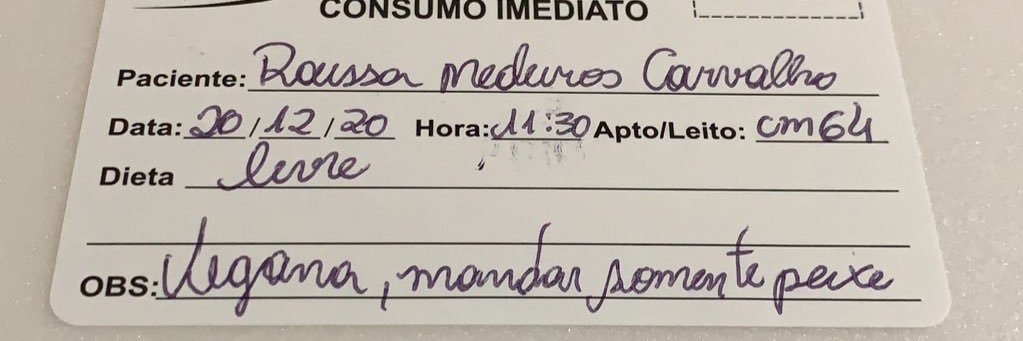 CONSUMO IMEDIATO
Paciente: Raissa Medeiros Carvalho
Data: 20/12/20 Hora: 11:30 Apto/Leito: cm64
Dieta livre
OBS: Vegana, mandar somente peixe